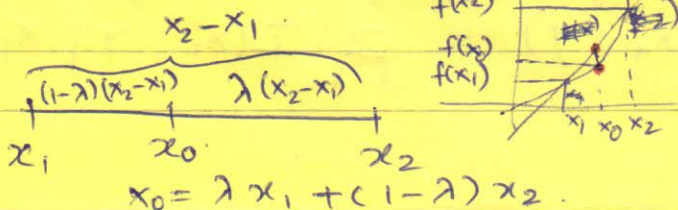 x₂ - x₁
(1-λ)(x₂-x₁) λ(x₂-x₁)
x₁ x₀ x₂
x₀ = λ x₁ + (1-λ) x₂.
f(x₂)
f(x₀)
f(x₁)
x₁ x₀ x₂